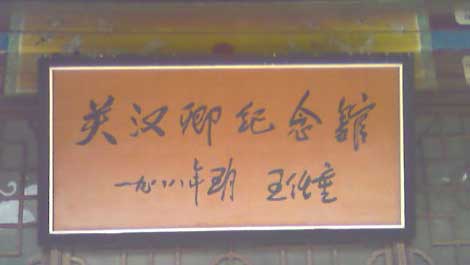 关汉卿纪念館
一九八八年五月 王任重